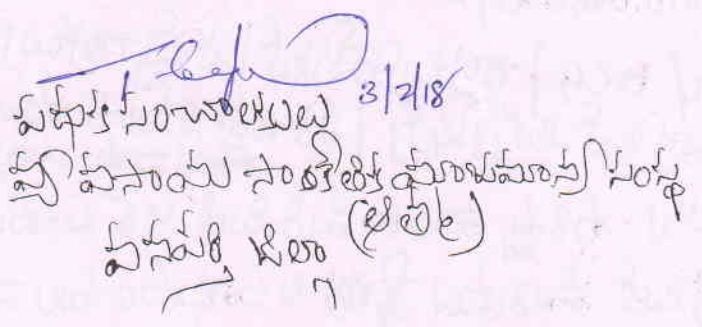 3/2/18
పథక సంచాలకులు
వ్యవసాయ సాంకేతిక యాజమాన్య సంస్థ
(ఆత్మ)
వనపర్తి జిల్లా